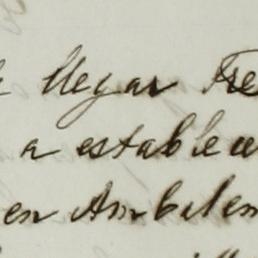 llegar Fre
a establec
en Ambalem